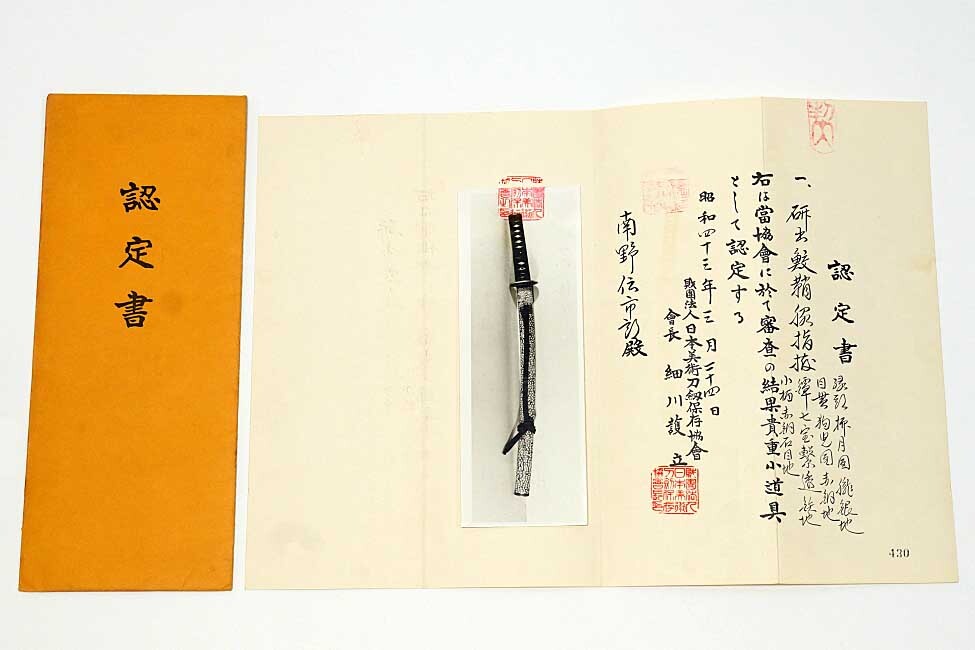 認定書
認定書
一、研出鮫鞘脇指拵
縁頭 月図 朧銀地
目貫 狗児図 赤銅地
鐔 七宝繋透 鉄地
小柄 赤銅石目地
右は當協會に於て審査の結果貴重小道具
として認定する
昭和四十三年三月二十四日
財團法人日本美術刀剱保存協會
會長 細川護立
南野伝市郎殿
430